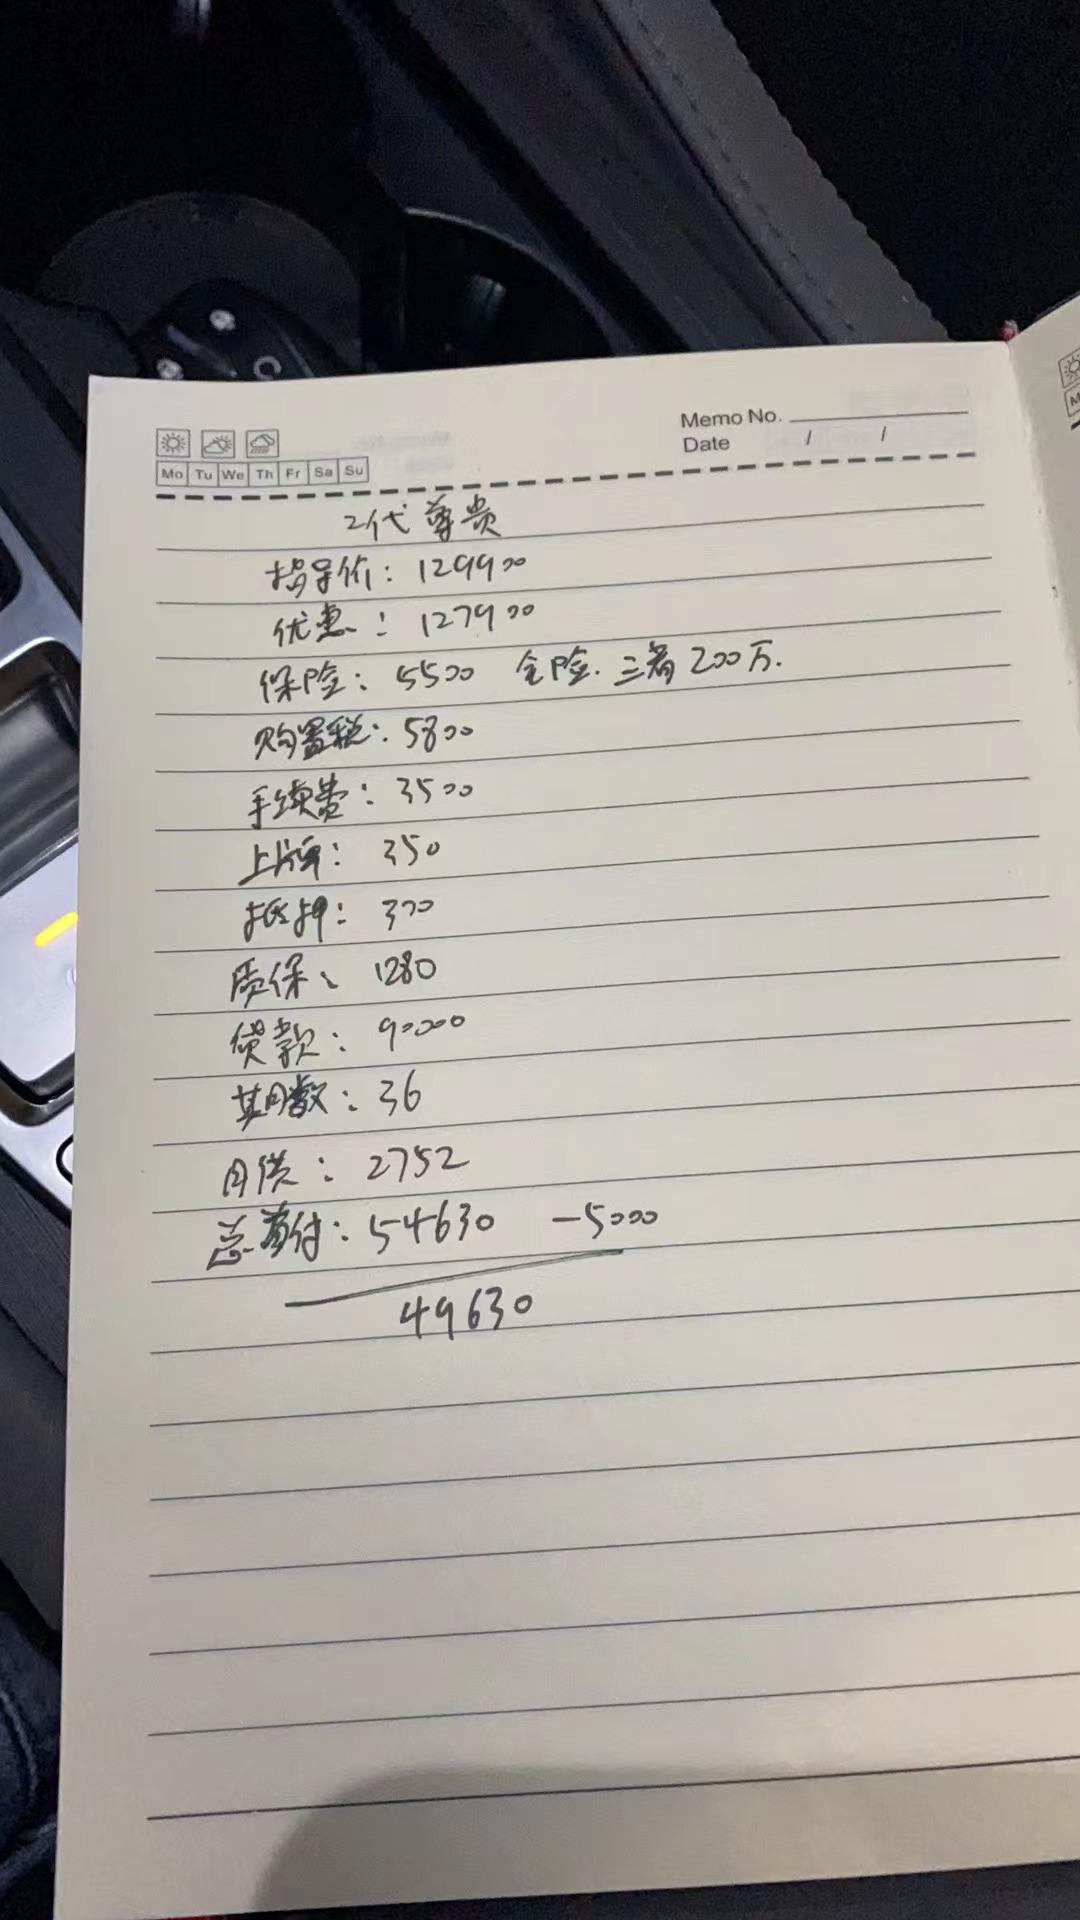 Memo No.
Date / /
Mo Tu We Th Fr Sa Su
2代尊贵
指导价：129900
优惠：127900
保险：5500 全险．三者200万．
购置税：5800
手续费：3500
上牌：350
抵押：300
质保、1280
贷款：90000
期数：36
月供：2752
总首付：54630 -5000
49630